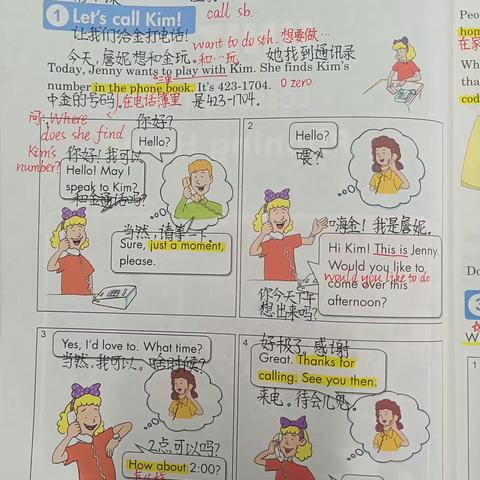 call sb.
1 Let's call Kim!
让我们给金打电话!
want to do sth. 想要做…
今天,詹妮想和金玩。和…玩 她找到通讯录
Today, Jenny wants to play with Kim. She finds Kim's
number in the phone book. It's 423-1704. 0 zero
中金的号码 在电话簿里 是423-1704.
问: Where
does she find
Kim's
number?
你好?
Hello?
你好!我可以
Hello! May I
speak to Kim?
和金通话吗?
当然,请等一下.
Sure, just a moment,
please.
2
Hello?
喂?
嗨金!我是詹妮.
Hi Kim! This is Jenny.
Would you like to
would you like to do
come over this
afternoon?
你今天下午
想出来吗?
3
Yes, I'd love to. What time?
当然,我可以。啥时候?
2点可以吗?
How about 2:00?
4
好极了,感谢
Great. Thanks for
calling. See you then.
来电。待会儿见。
Peo
hom
在家
Wh
tha
cod
Do
3
W
1